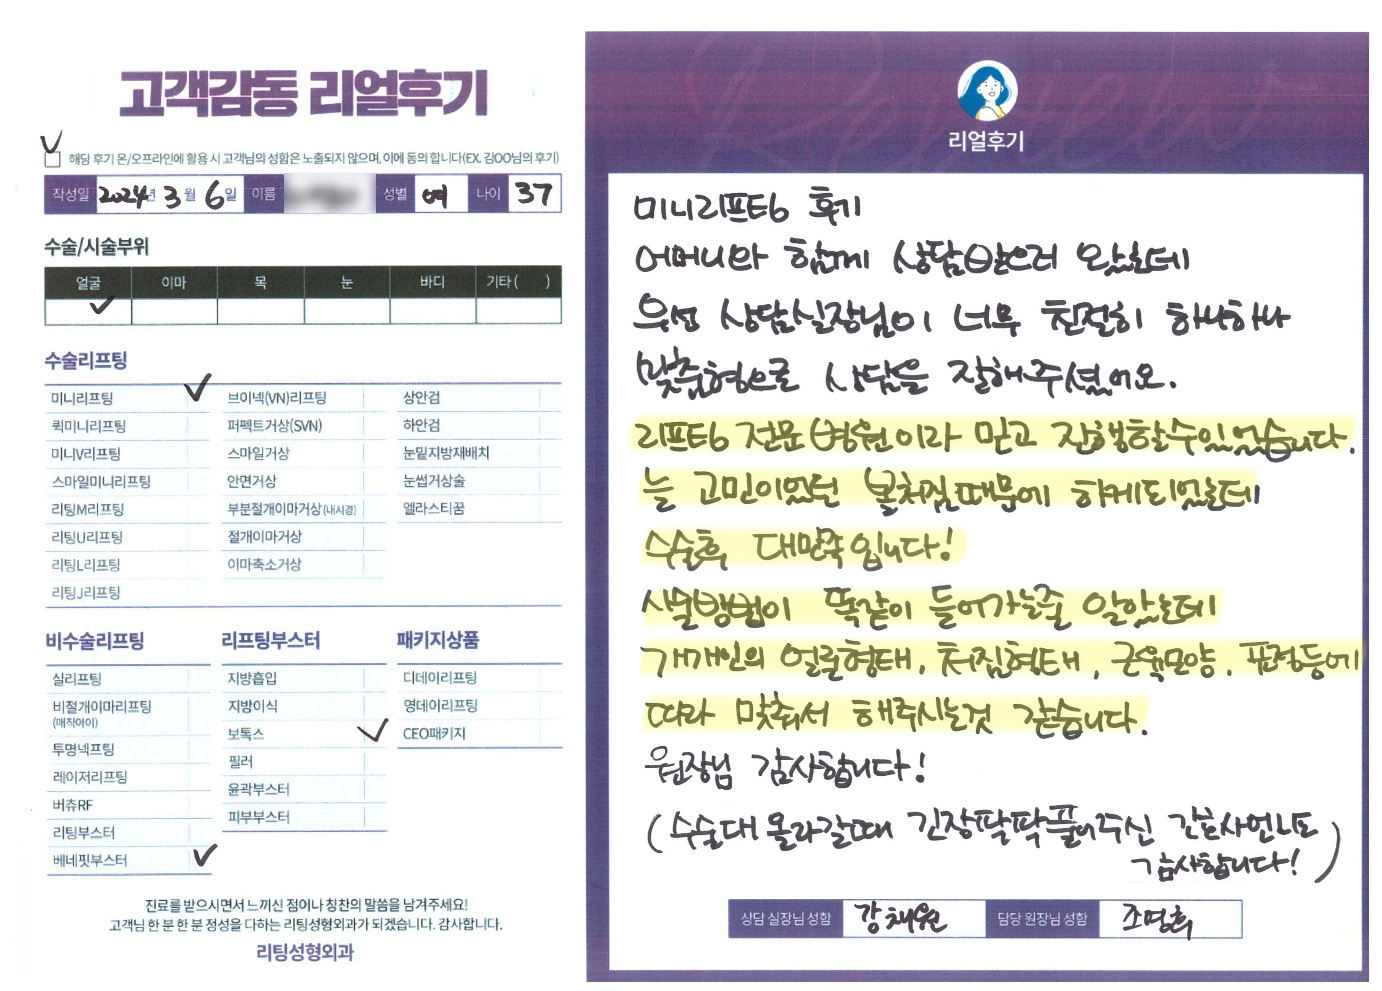 고객감동 리얼후기
해당 후기 온/오프라인에 활용 시 고객님의 성함은 노출되지 않으며, 이에 동의 합니다(EX. 김OO님의 후기)
작성일 2024년 3월 6일 이름 성별 여 나이 37
수술/시술부위
얼굴 이마 목 눈 바디 기타 ( )
수술리프팅
미니리프팅 브이넥(VN)리프팅 상안검
퀵미니리프팅 퍼펙트거상(SVN) 하안검
미니V리프팅 스마일거상 눈밑지방재배치
스마일미니리프팅 안면거상 눈썹거상술
리팅M리프팅 부분절개이마거상(내시경) 엘라스티꿈
리팅U리프팅 절개이마거상
리팅L리프팅 이마축소거상
리팅J리프팅
비수술리프팅 리프팅부스터 패키지상품
실리프팅 지방흡입 디데이리프팅
비절개이마리프팅 지방이식 영데이리프팅
(매직아이)
투명넥프팅 보톡스 CEO패키지
레이저리프팅 필러
버츄RF 윤곽부스터
리팅부스터 피부부스터
베네핏부스터
진료를 받으시면서 느끼신 점이나 칭찬의 말씀을 남겨주세요!
고객님 한 분 한 분 정성을 다하는 리팅성형외과가 되겠습니다. 감사합니다.
리팅성형외과
Review
리얼후기
미니리프팅 후기
어머니와 함께 상담받으러 왔는데
우선 상담실장님이 너무 친절히 하나하나
맞춤형으로 상담을 잘해주셨어요.
리프팅 전문병원이라 믿고 진행할수있었습니다.
늘 고민이었던 볼처짐때문에 하게되었는데
수술후 대만족입니다!
시술방법이 똑같이 들어가는줄 알았는데
개개인의 얼굴형태, 처짐형태, 근육모양, 표정등에
따라 맞춰서 해주시는것 같습니다.
원장님 감사합니다!
(수술대 올라갈때 긴장팍팍풀어주신 간호사언니도
감사합니다!)
상담 실장님 성함 강채원 담당 원장님 성함 조명흭